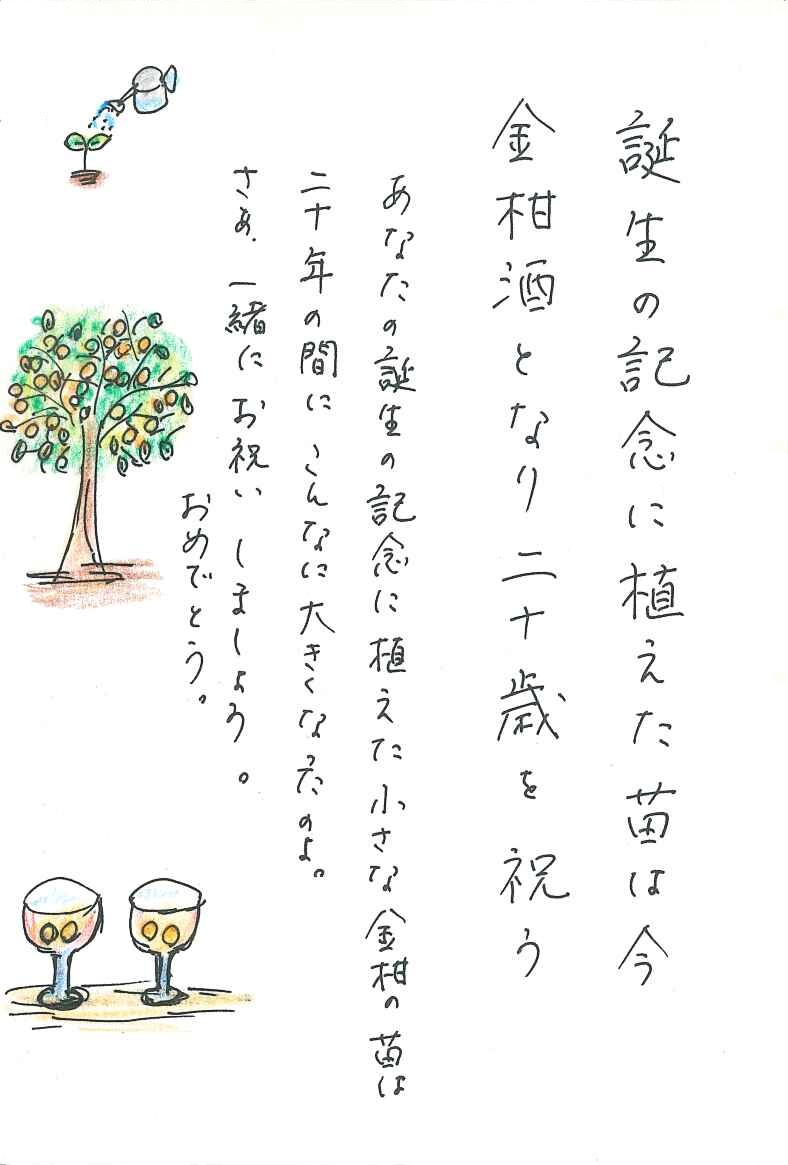 誕生の記念に植えた苗は今
金柑酒となり二十歳を祝う
あなたの誕生の記念に植えた小さな金柑の苗は
二十年の間にこんなに大きくなったのよ。
さあ、一緒にお祝いしましょう。
おめでとう。